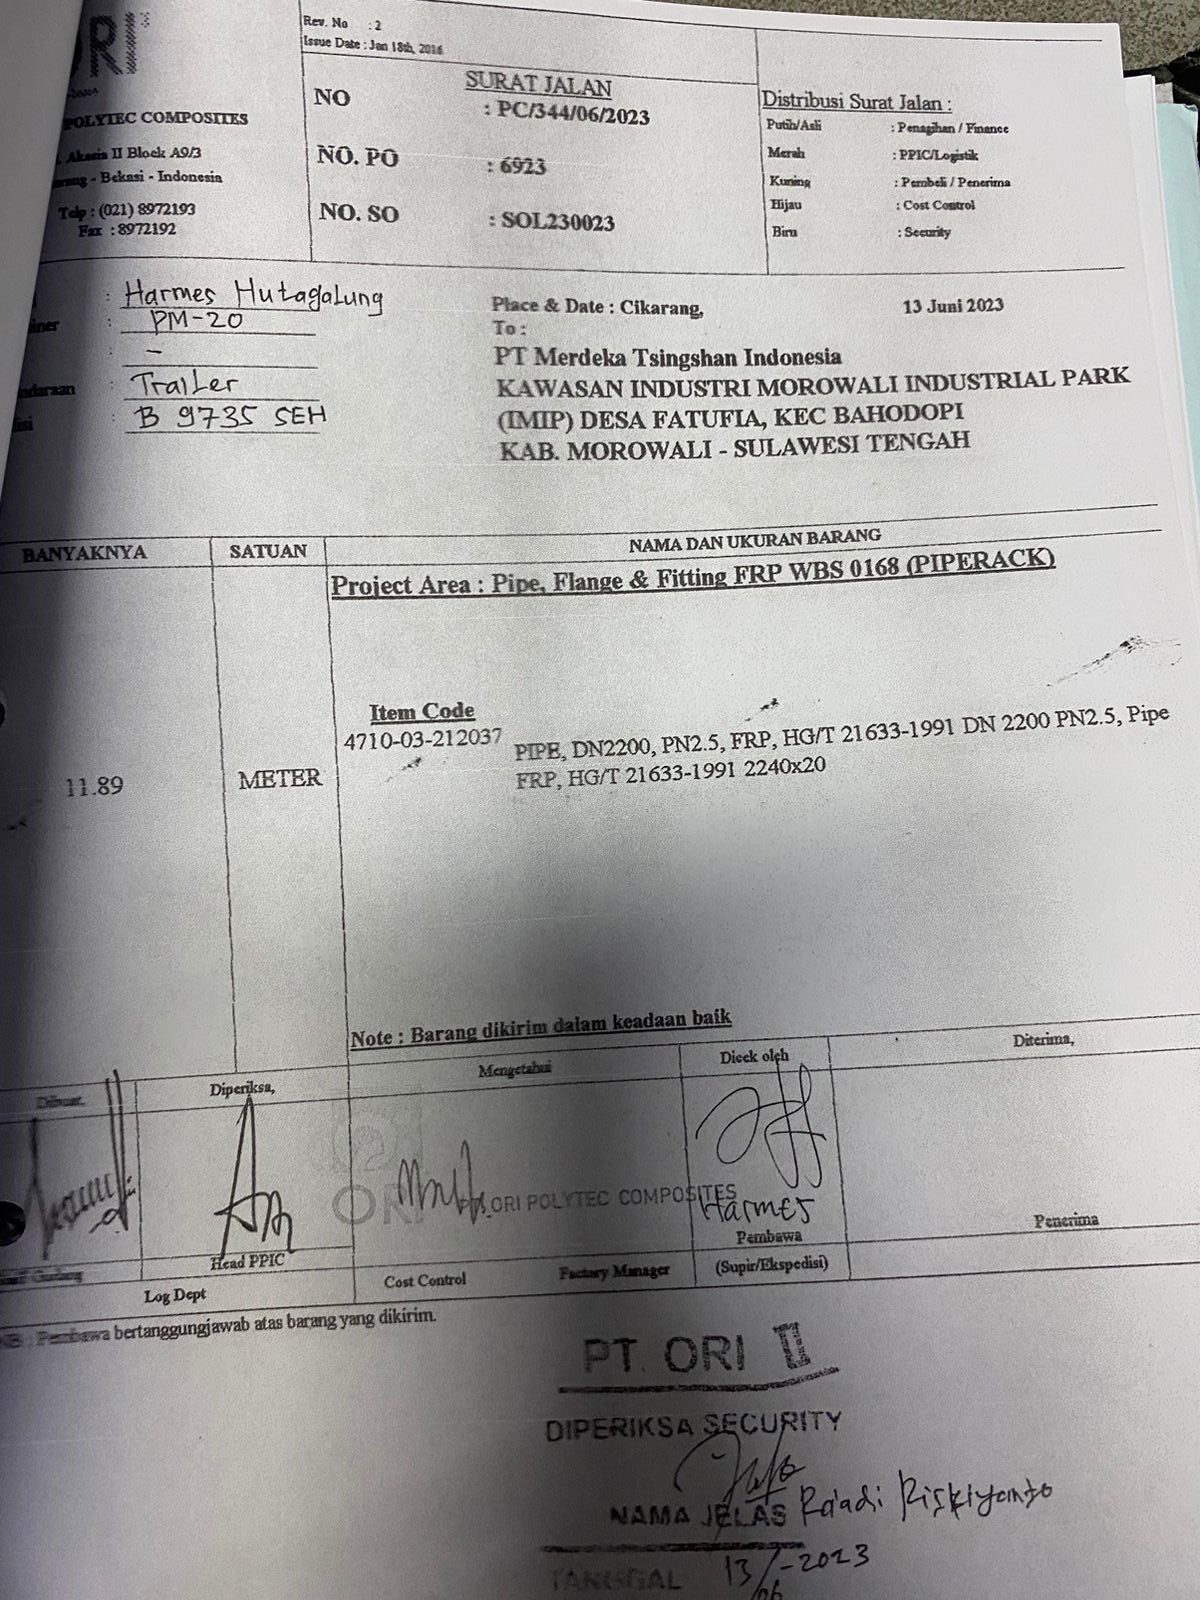 ORI
Rev. No : 2
Issue Date : Jan 18th, 2016
POLYTEC COMPOSITES
Akasia II Block A9/3
- Bekasi - Indonesia
Telp : (021) 8972193
Fax : 8972192
SURAT JALAN
NO : PC/344/06/2023
NO. PO : 6923
NO. SO : SOL230023
Distribusi Surat Jalan :
Putih/Asli : Penagihan / Finance
Merah : PPIC/Logistik
Kuning : Pembeli / Penerima
Hijau : Cost Control
Biru : Security
: Harmes Hutagalung
: PM-20
: -
: Trailer
: B 9735 SEH
Place & Date : Cikarang, 13 Juni 2023
To :
PT Merdeka Tsingshan Indonesia
KAWASAN INDUSTRI MOROWALI INDUSTRIAL PARK
(IMIP) DESA FATUFIA, KEC BAHODOPI
KAB. MOROWALI - SULAWESI TENGAH
BANYAKNYA SATUAN NAMA DAN UKURAN BARANG
Project Area : Pipe, Flange & Fitting FRP WBS 0168 (PIPERACK)
Item Code
4710-03-212037 PIPE, DN2200, PN2.5, FRP, HG/T 21633-1991 DN 2200 PN2.5, Pipe
11.89 METER FRP, HG/T 21633-1991 2240x20
Note : Barang dikirim dalam keadaan baik
Dibuat, Diperiksa, Mengetahui Dicek oleh Diterima,
ORI
ORI POLYTEC COMPOSITES
Harmes
Head PPIC Pembawa Penerima
Log Dept Cost Control Factory Manager (Supir/Ekspedisi)
NB : Pembawa bertanggungjawab atas barang yang dikirim.
PT. ORI II
DIPERIKSA SECURITY
NAMA JELAS Riadi Riskiyanto
TANGGAL 13/06-2023